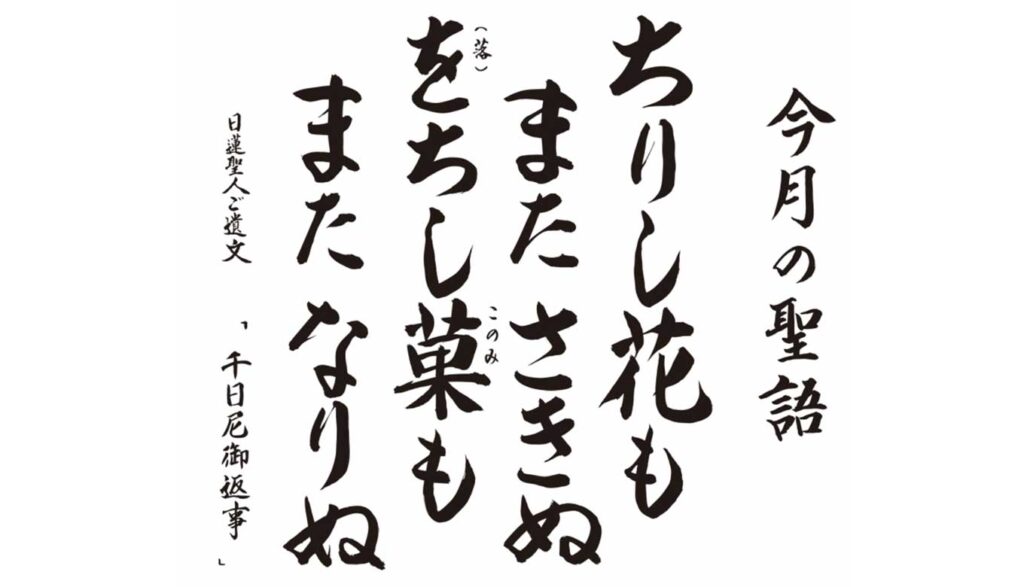 今月の聖語
ちりし花も
また さきぬ
をちし菓も
(落)
このみ
また なりぬ
日蓮聖人ご遺文
「千日尼御返事」